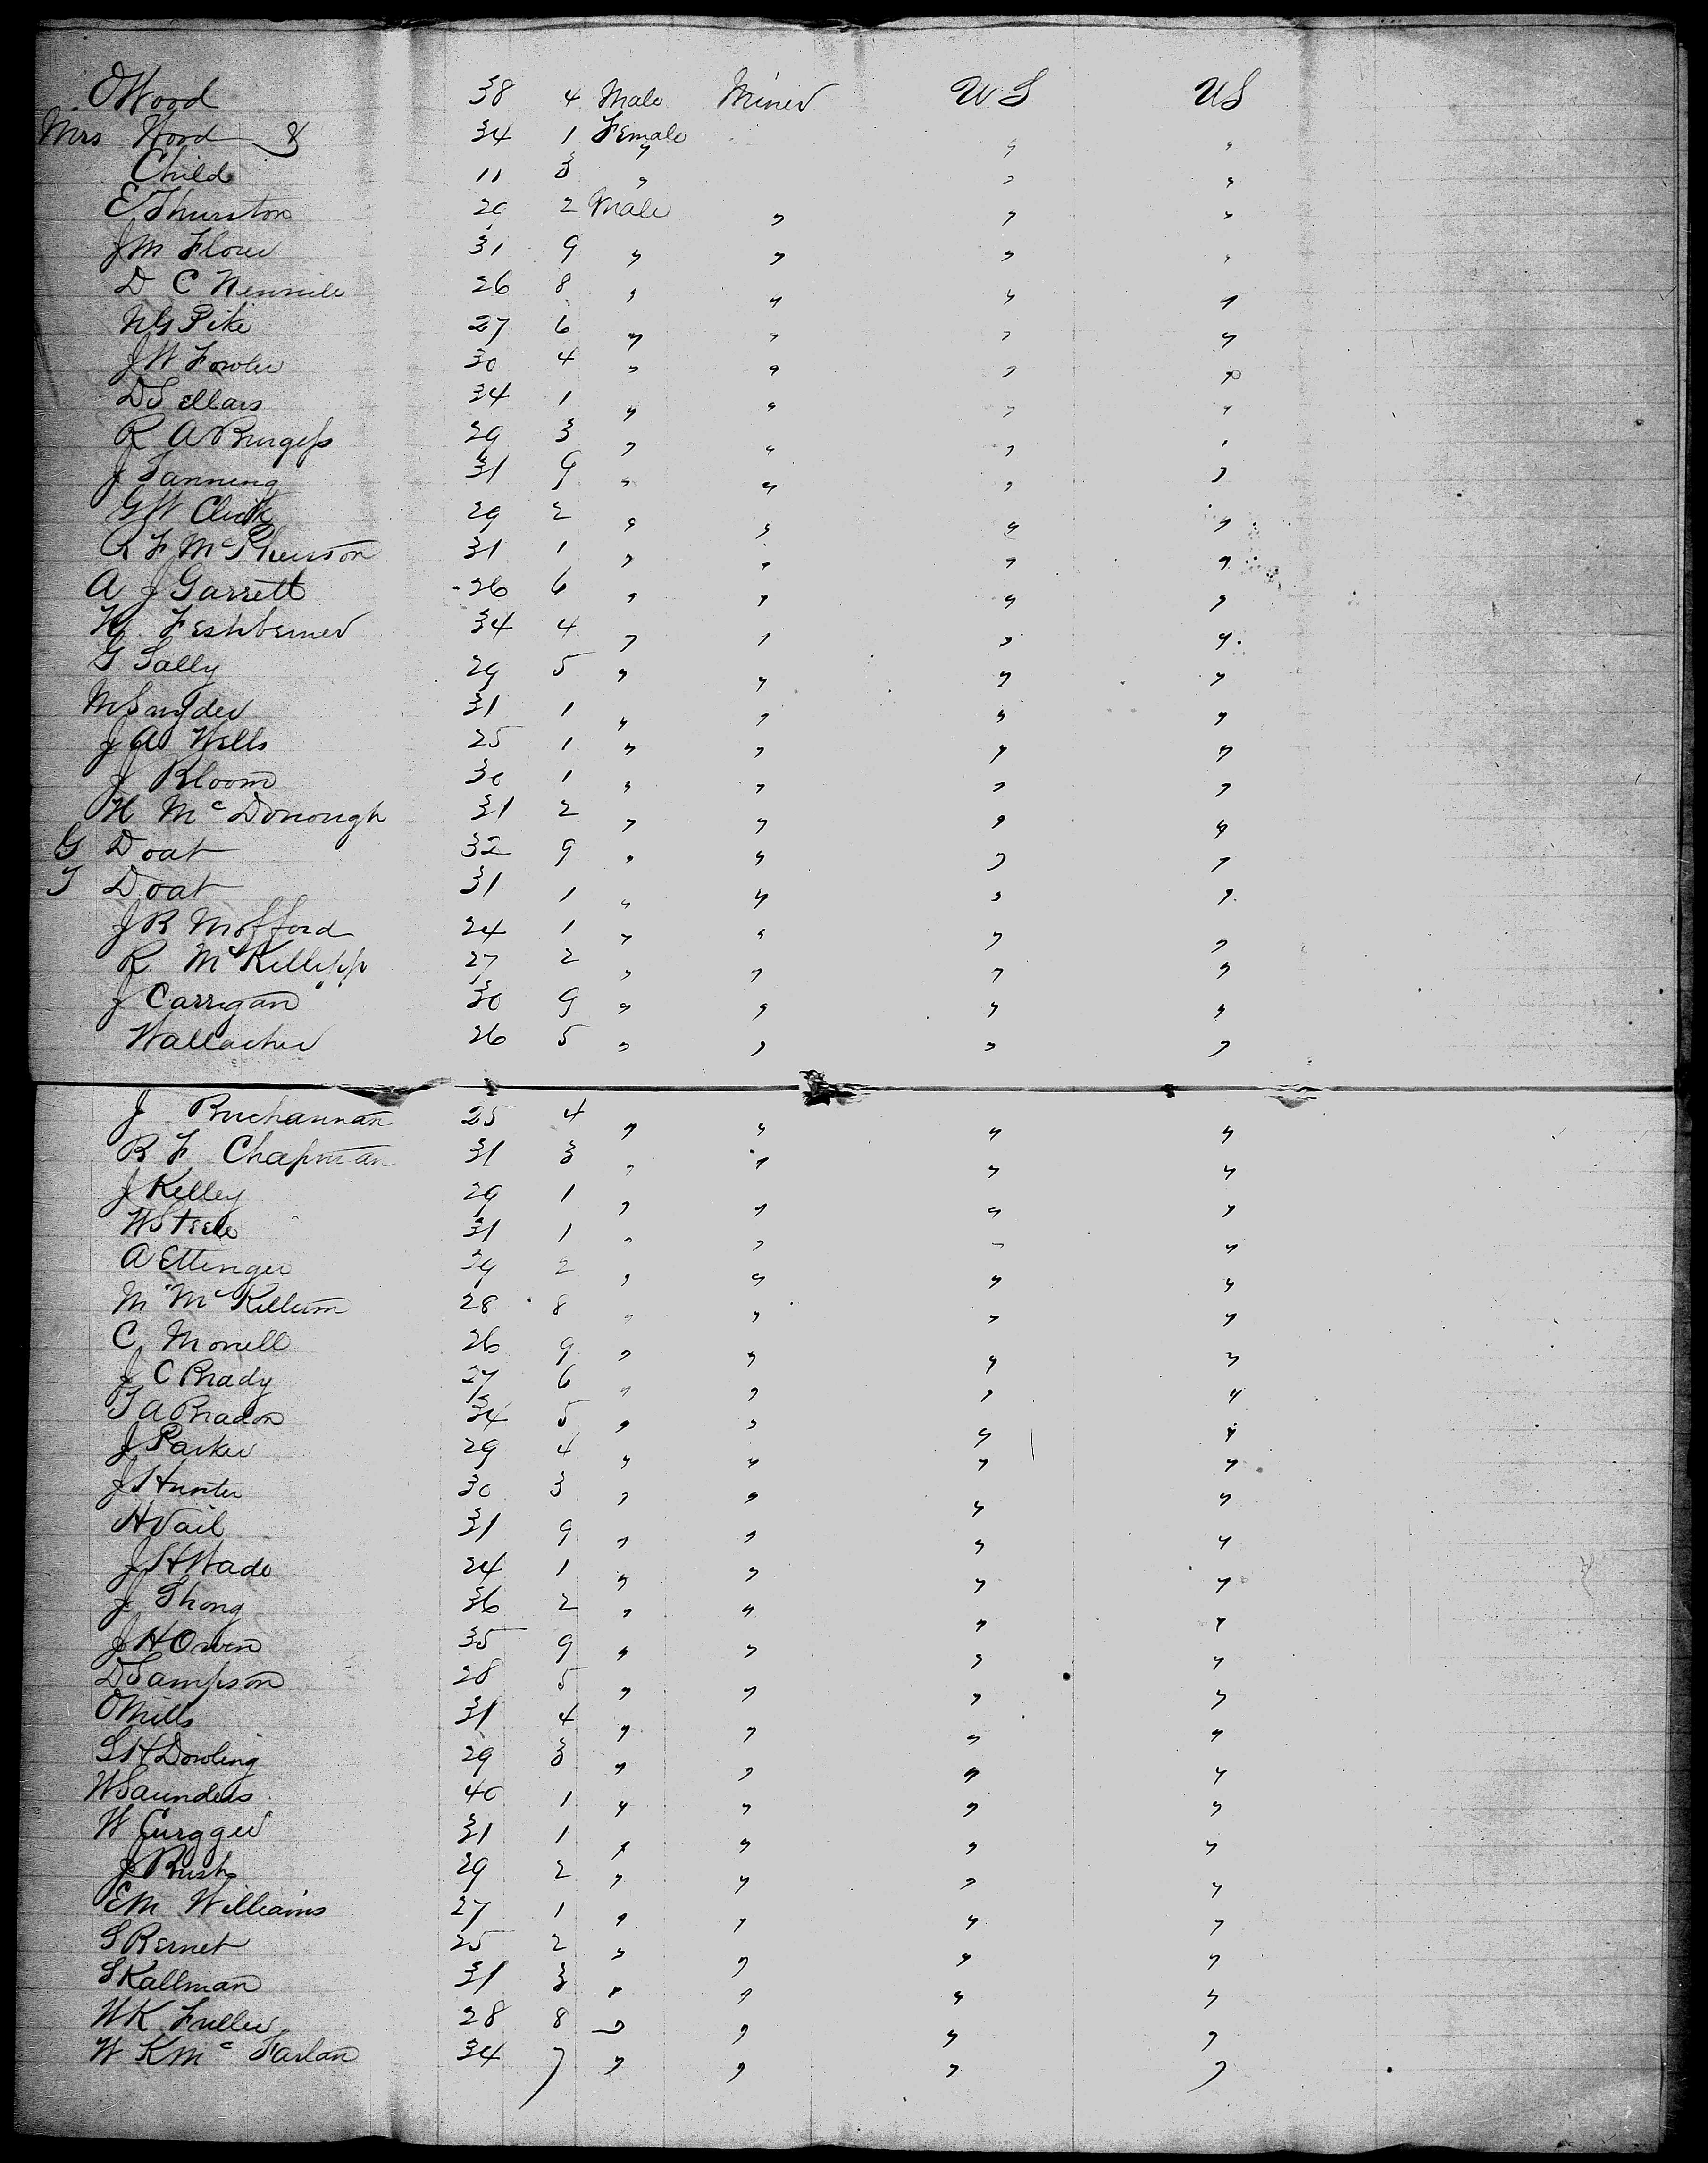 O Wood 38 4 Male Miner U S US
Mrs Wood & 34 1 Female " "
Child 11 3 " " "
E Thurston 29 2 Male " " "
J M Flower 31 9 " " " "
D C 26 8 " " " "
N G Pike 27 6 " " " "
J W Fowler 30 4 " " " "
D Sellars 34 1 " " " "
R A Burgess 29 3 " " " "
J Fanning 31 9 " " " "
G W 29 2 " " " "
R F McPherson 31 1 " " " "
A J Garrett 26 6 " " " "
34 4 " " " "
G Sally 29 5 " " " "
M Snyder 31 1 " " " "
J A Wells 25 1 " " " "
J Bloom 30 1 " " " "
H McDonough 31 2 " " " "
G Doat 32 9 " " " "
T Doat 31 1 " " " "
J R Mofford 24 1 " " " "
R McKillipp 27 2 " " " "
J Carrigan 30 9 " " " "
Wallacher 26 5 " " " "
J Buchannan 25 4 " " " "
R F Chapman 31 3 " " " "
J Kelley 29 1 " " " "
W Steele 31 1 " " " "
A Ettinger 29 2 " " " "
M McKellum 28 8 " " " "
C Morrell 26 9 " " " "
J C Brady 27 6 " " " "
T A Bradon 34 5 " " " "
J Parker 29 4 " " " "
J Hunter 30 3 " " " "
H Vail 31 9 " " " "
J H Wade 24 1 " " " "
J Shong 36 2 " " " "
J H Owen 35 9 " " " "
D Sampson 28 5 " " " "
O Mills 31 4 " " " "
S H Dowling 29 3 " " " "
W Saunders 40 1 " " " "
W 31 1 " " " "
J Rush 29 2 " " " "
E M Williams 27 1 " " " "
S Bernet 25 2 " " " "
S Kallman 31 3 " " " "
W K Fuller 28 8 " " " "
W K McFarlan 34 7 " " " "